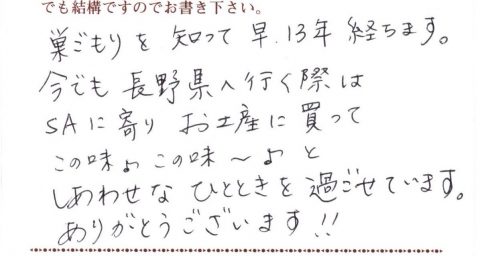 でも結構ですのでお書き下さい。
巣ごもりを 知って 早.13年 経ちます。
今でも 長野県へ行く際は
SAに寄り お土産に買って
この味♪ この味〜♪ と
しあわせな ひとときを過ごせています。
ありがとうございます!!